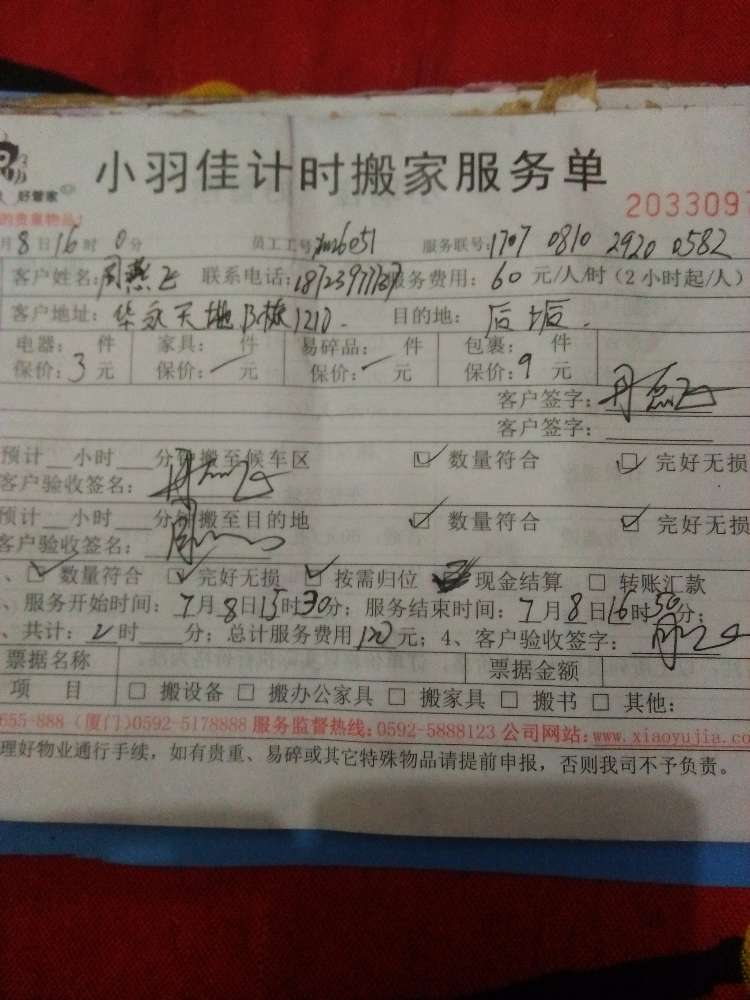 小羽佳计时搬家服务单
好管家
的贵重物品!
2033097
月8日16时0分 员工工号: 服务联号:1707 0810 2920 0582
客户姓名:周燕飞 联系电话: 服务费用:60元/人/时(2小时起/人)
客户地址:华永天地B栋1210. 目的地:后垢.
电器: 件 家具: 件 易碎品: 件 包裹: 件
保价:3元 保价:一元 保价:一元 保价:9元
客户签字:
客户签字:
预计 小时 分钟搬至候车区 ☑数量符合 ☑完好无损
客户验收签名:
预计 小时 分钟搬至目的地 ☑数量符合 ☑完好无损
客户验收签名:
、☑数量符合 ☑完好无损 ☑按需归位 ☑现金结算 □转账汇款
、服务开始时间:7月8日15时30分;服务结束时间:7月8日16时50分;
、共计:2时 分;总计服务费用120元;4、客户验收签字:
票据名称 票据金额
项 目 □搬设备 □搬办公家具 □搬家具 □搬书 □其他:
655-888(厦门)0592-5178888 服务监督热线:0592-5888123 公司网站:www.xiaoyujia.co
理好物业通行手续,如有贵重、易碎或其它特殊物品请提前申报,否则我司不予负责。